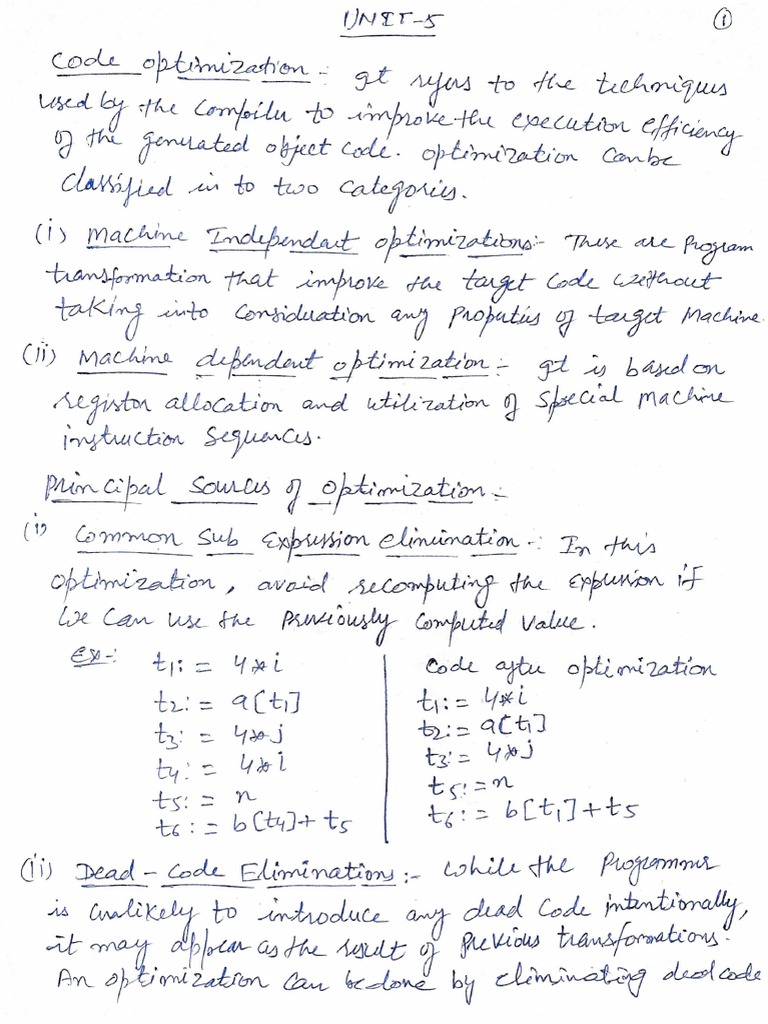 UNIT-5 ①
Code optimization - It refers to the techniques
used by the compiler to improve the execution efficiency
of the generated object code. optimization can be
classified in to two categories.
(i) Machine Independant optimizations:- These are Program
transformation that improve the target code without
taking into consideration any Properties of target Machine.
(ii) Machine dependent optimization:- It is based on
registor allocation and utilization of special machine
instruction sequences.
Principal Sources of optimization:-
(i) Common Sub Expression elimination:- In this
optimization, avoid recomputing the expression if
we can use the previously computed value.
Ex-: t1: = 4*i
t2: = a[t1]
t3: = 4*j
t4: = 4*i
t5: = n
t6: = b[t4]+t5
Code after optimization
t1: = 4*i
t2: = a[t1]
t3: = 4*j
t5: = n
t6: = b[t1]+t5
(ii) Dead-Code Eliminations:- While the Programmer
is unlikely to introduce any dead code intentionally,
it may appear as the result of previous transformations.
An optimization can be done by eliminating dead code